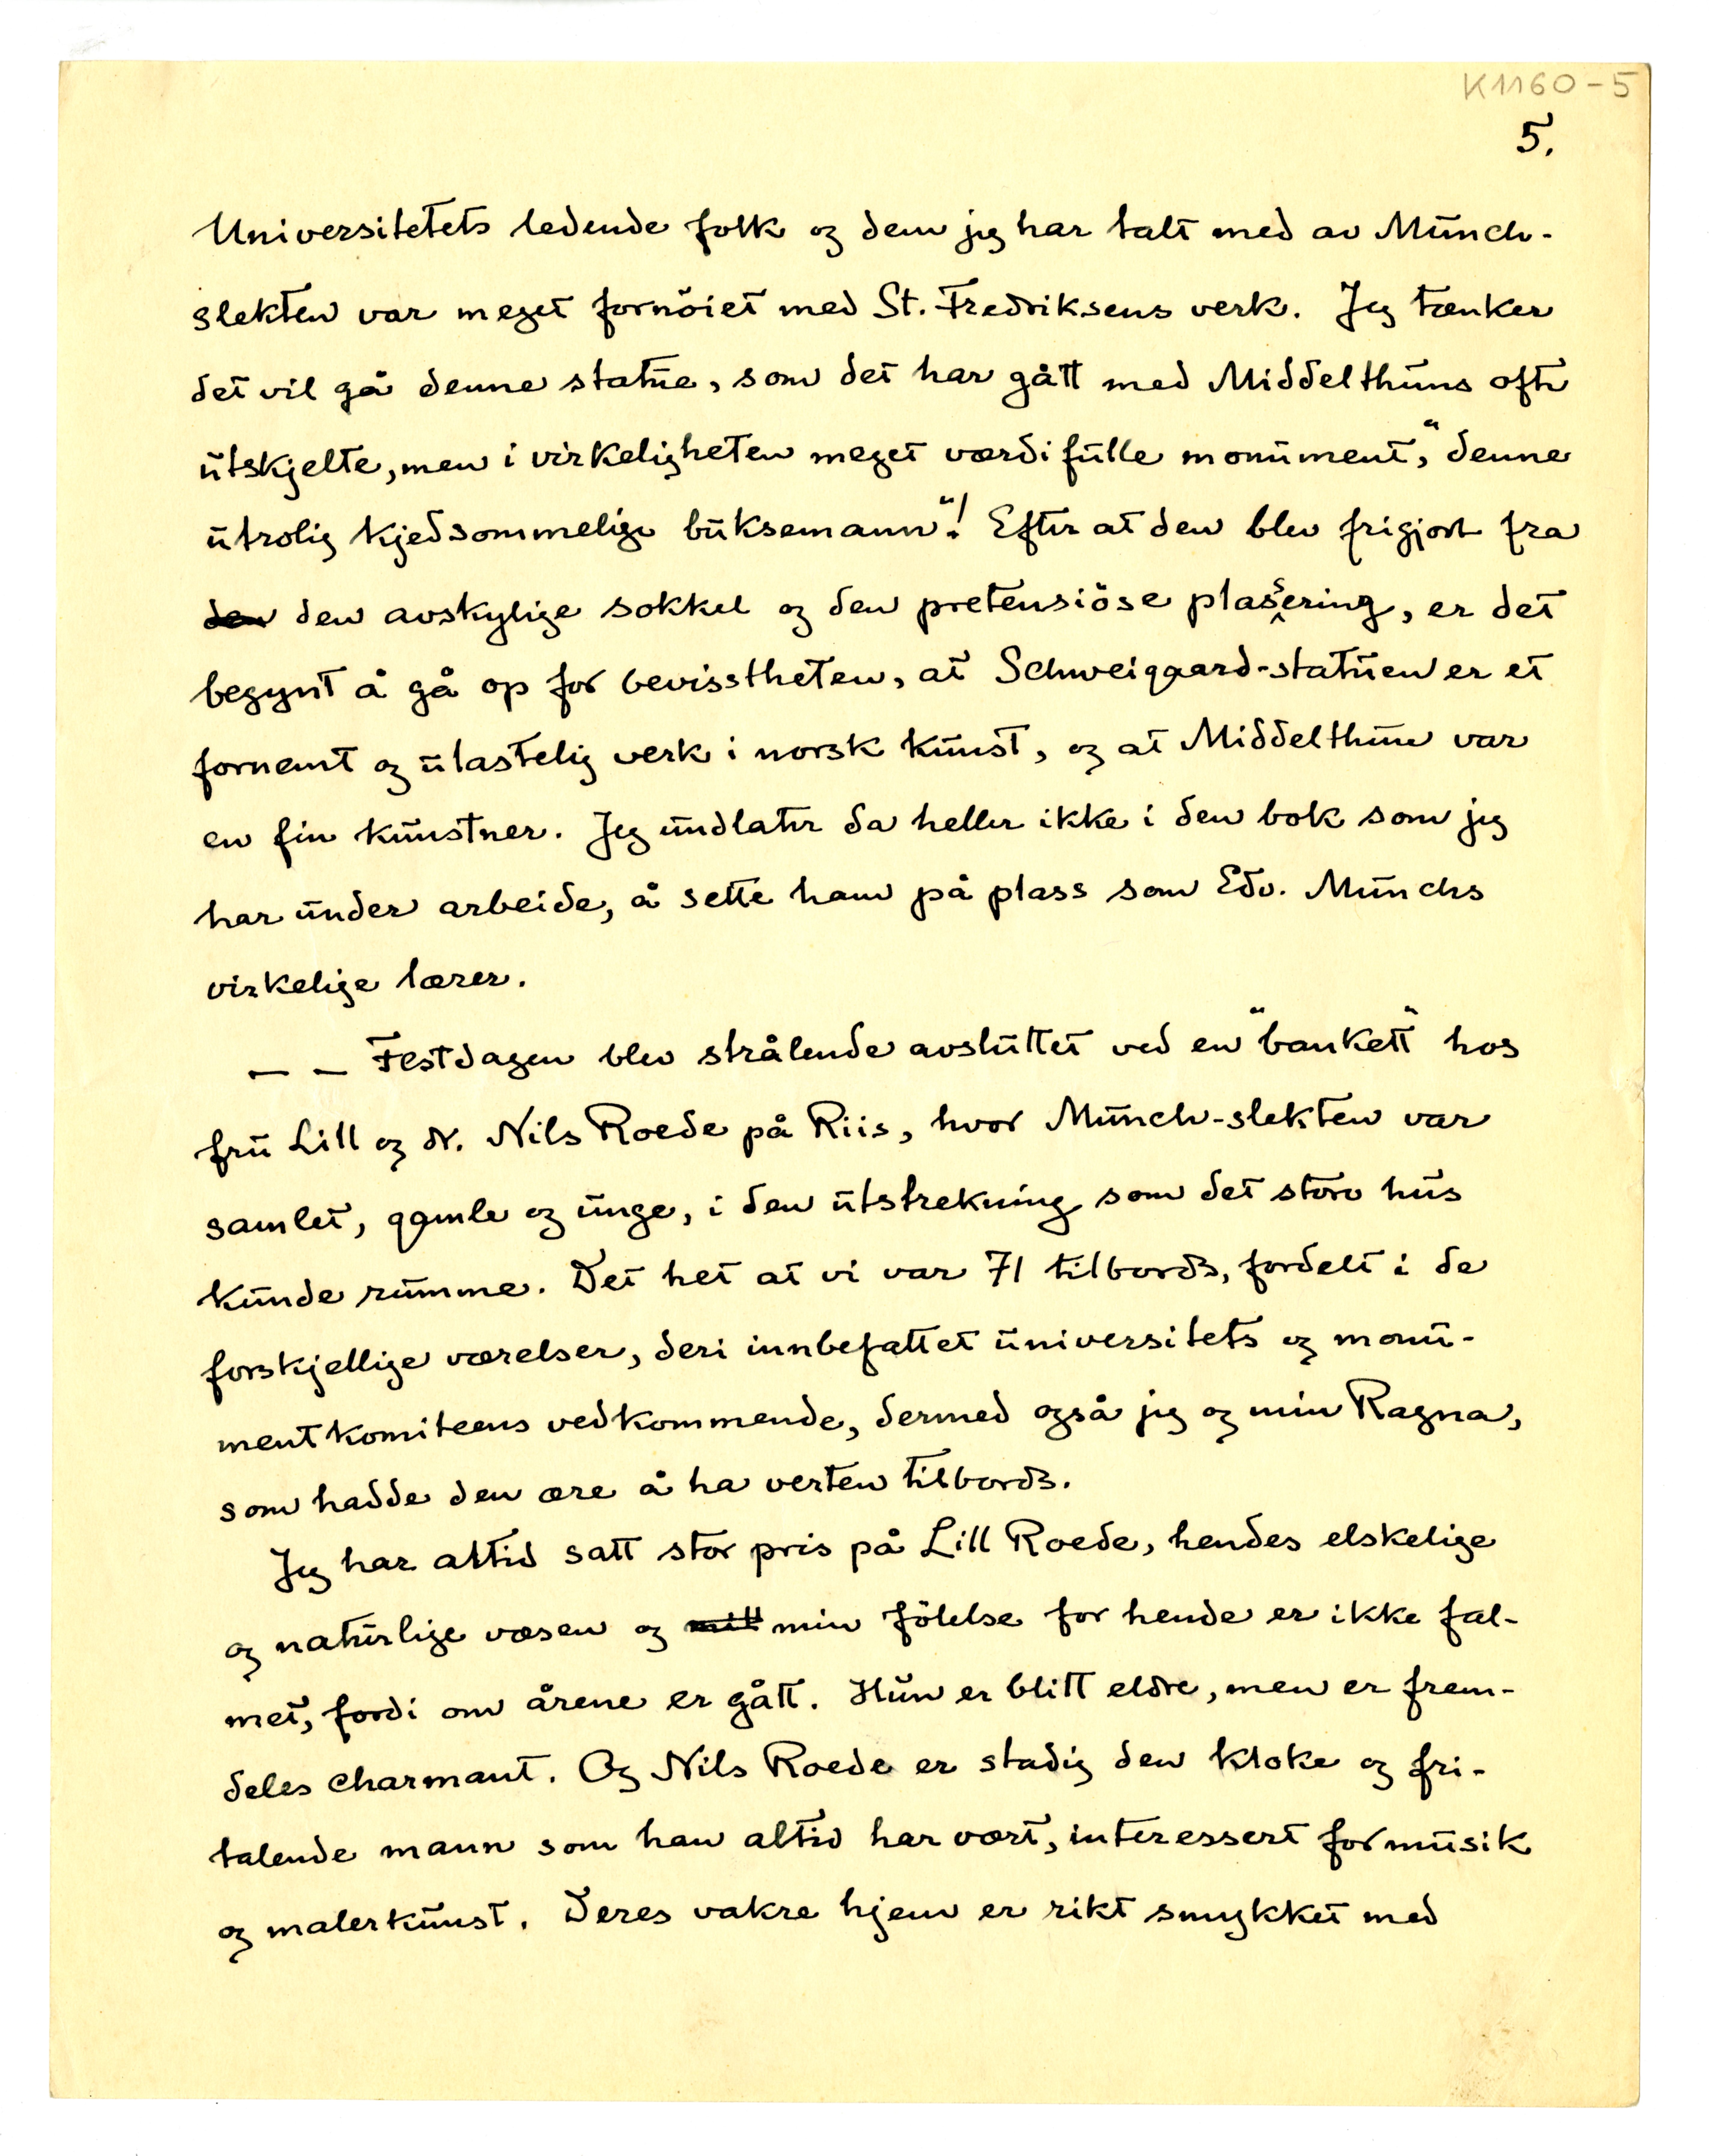 K1160-5
5.
Universitetets ledende folk og dem jeg har talt med av Munch-
slekten var meget fornöiet med St. Fredriksens verk. Jeg tænker
det vil gå denne statue, som det har gått med Middelthuns ofte
utskjelte, men i virkeligheten meget værdifulle monument, "denne
utrolig kjedsommelige buksemann"! Efter at den blev frigjort fra
den den avskylige sokkel og den pretensiöse plassering, er det
begynt å gå op for bevisstheten, at Schweigaard-statuen er et
fornemt og ulastelig verk i norsk kunst, og at Middelthun var
en fin kunstner. Jeg undlater da heller ikke i den bok som jeg
har under arbeide, å sette ham på plass som Edv. Munchs
virkelige lærer.
— — Festdagen blev strålende avsluttet ved en "bankett" hos
fru Lill og dr. Nils Roede på Riis, hvor Munch-slekten var
samlet, gamle og unge, i den utstrekning som det store hus
kunde rumme. Det het at vi var 71 tilbords, fordelt i de
forskjellige værelser, deri innbefattet universitets og monu-
mentkomiteens vedkommende, dermed også jeg og min Ragna,
som hadde den ære å ha verten tilbords.
Jeg har altid satt stor pris på Lill Roede, hendes elskelige
og naturlige væsen og mitt min fölelse for hende er ikke fal-
met, fordi om årene er gått. Hun er blitt eldre, men er frem-
deles charmant. Og Nils Roede er stadig den kloke og fri-
talende mann som han altid har vært, interessert for musik
og malerkunst. Deres vakre hjem er rikt smykket med